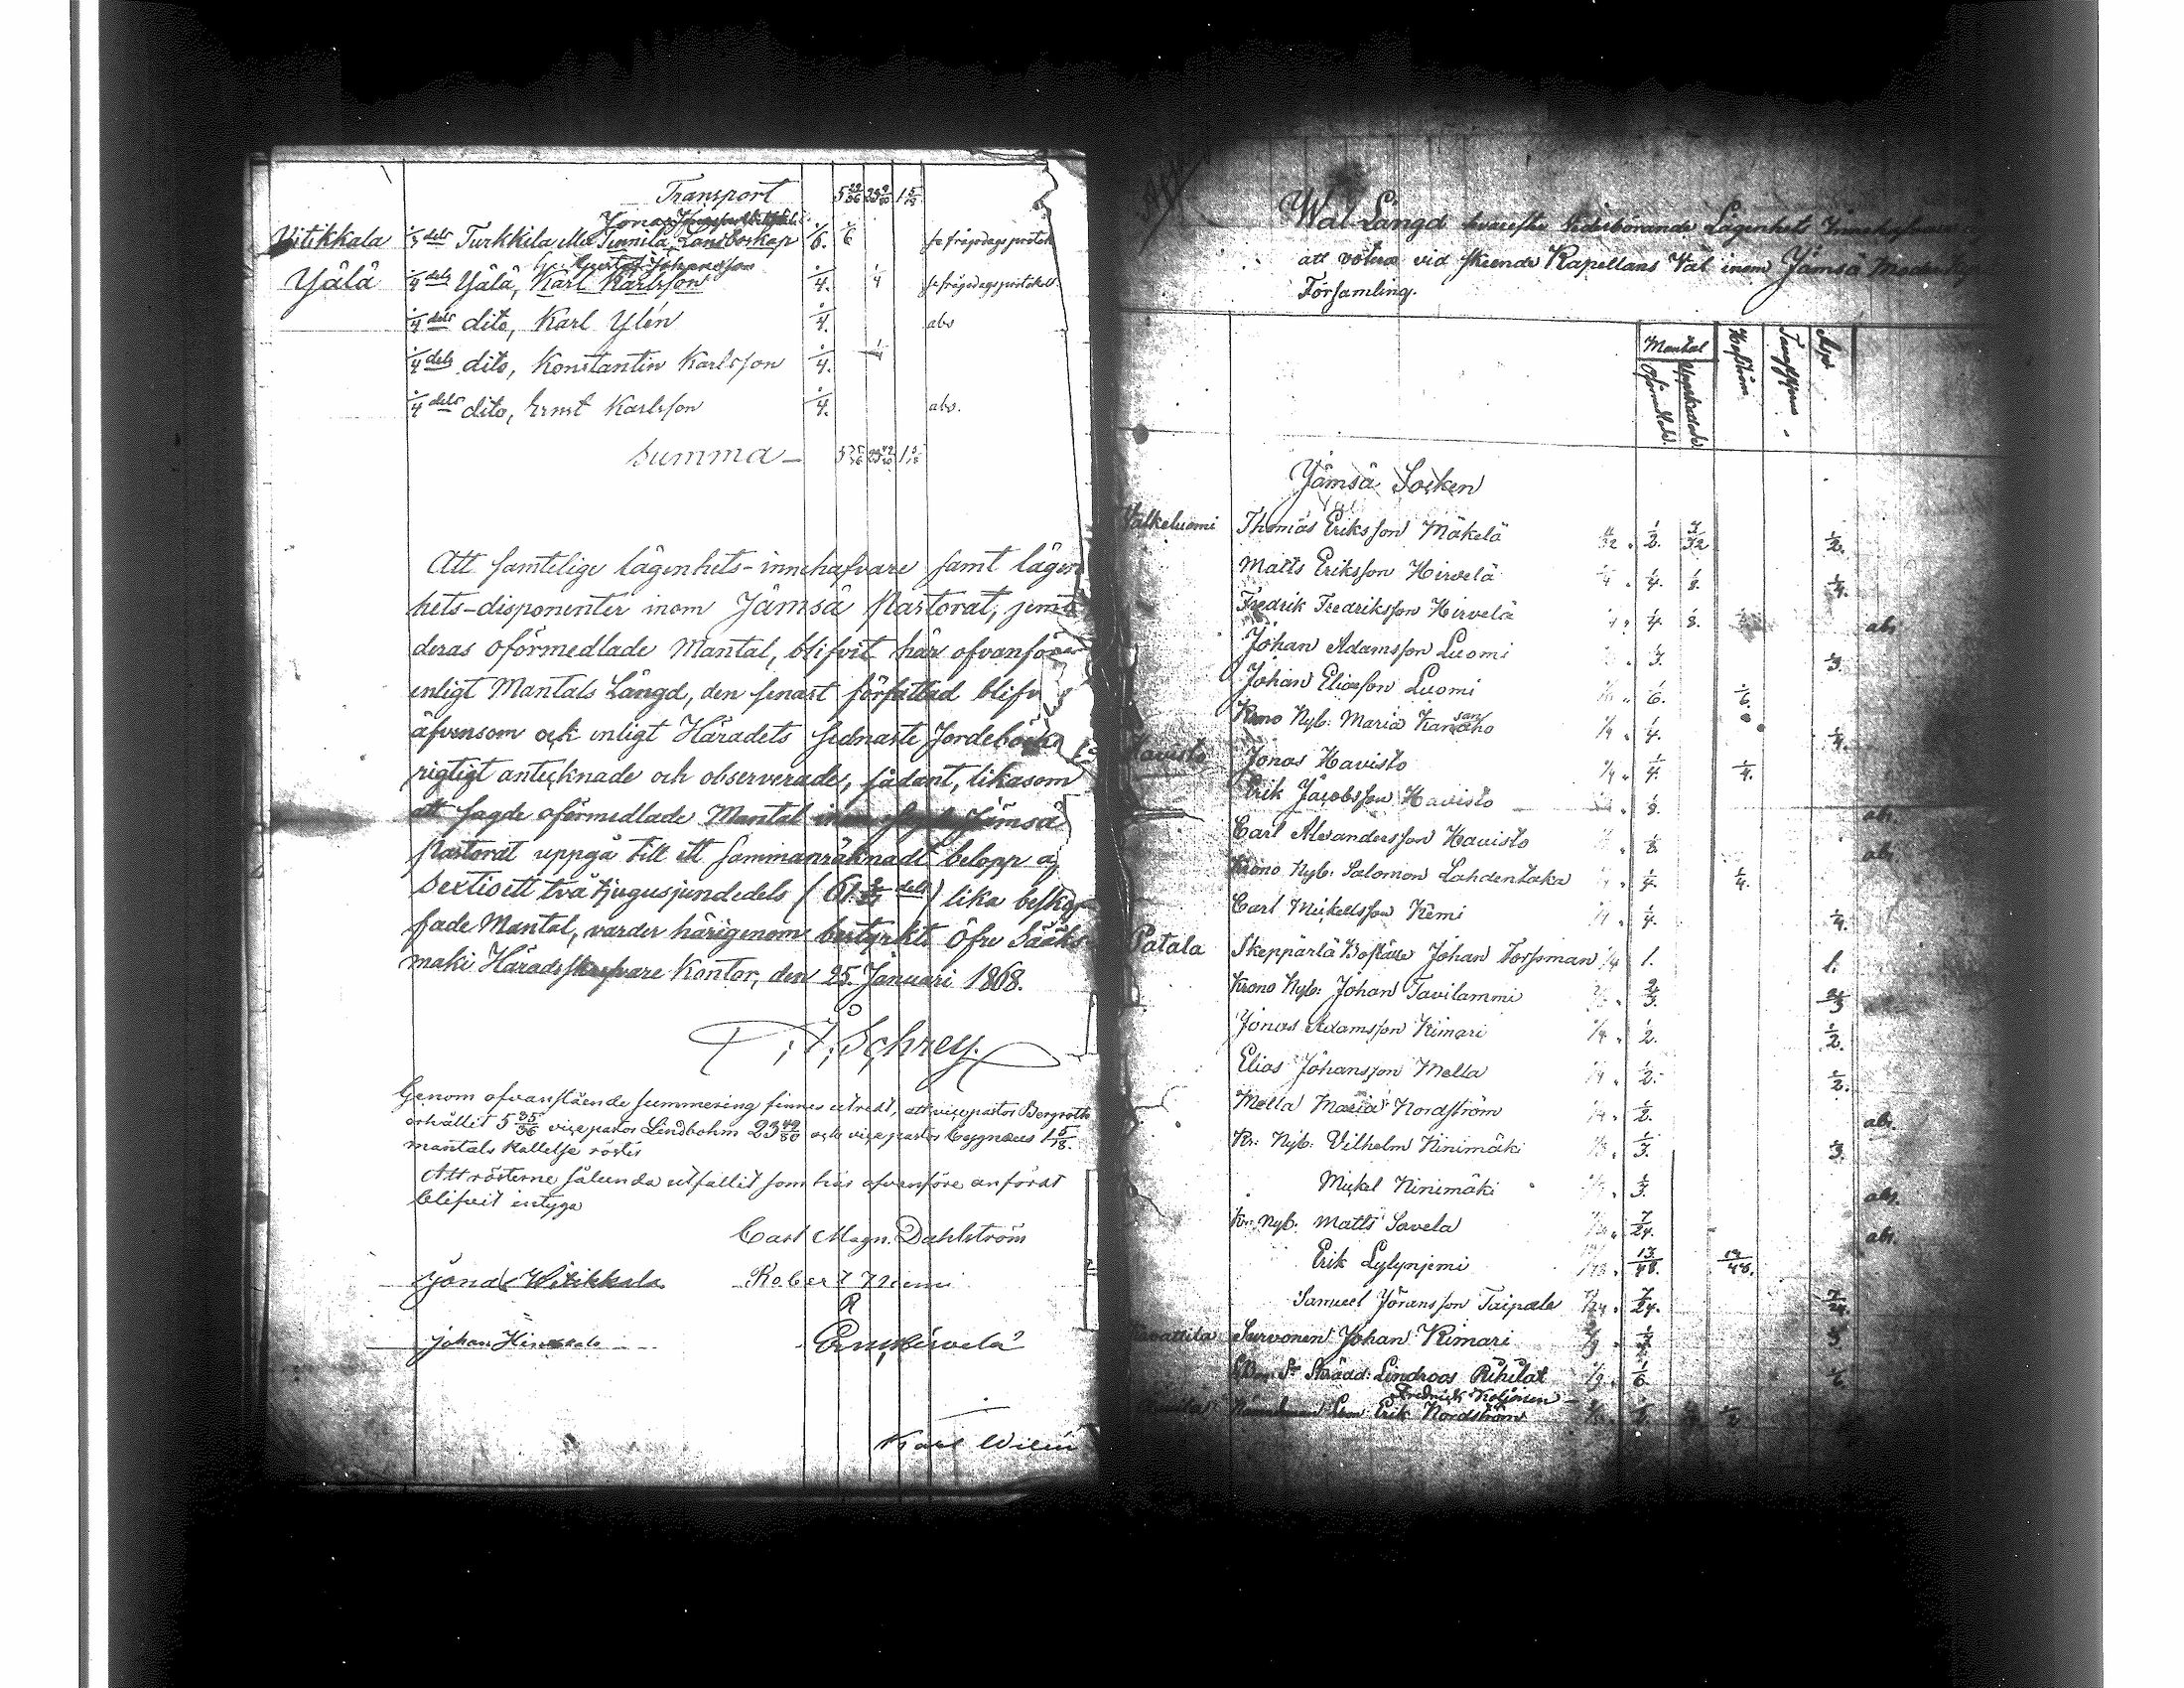 Transport 5 22/36 23 9/80 1 5/18
Jonas
Vitikkala 1/3 dels Turkkila Landboskap 1/6. 1/6 se frågedagsprotok
Gustaf Johansson
Yälä 1/4 dels Yälä, Karl Karlsson 1/4. 1/4 se frågedagsprotokoll
1/4 dels dito, Karl Ylén 1/4. abs
1/4 dels dito, Konstantin Karlsson 1/4. 1/4
1/4 dels dito, Ernst Karlsson 1/4. abs.
Summa 5 35/36 23 49/80 1 5/18
Att samtelige lägenhets-innehafvare samt lägen
hets-disponenter inom Jämsä Pastorat, jemte
deras oförmedlade Mantal, blifvit här ofvanföre
enligt Mantals Längd, den senast författad blifv
äfvensom ock enligt Häradets sednaste Jordebok
rigtigt antecknade och observerade, sådant, likasom
att sagde oförmedlade Mantal inom Jämsä
Pastorat uppgå till ett sammanräknadt belopp af
Sextioett två tjugusjundedels (61 2/27 dels) lika beskaf
fade Mantal, varder härigenom bestyrkt. Öfre Sääks-
mäki Häradsskrifvare Kontor, den 25. Januari 1868.
Schrey.
Genom ofvanstående summering finnes utredt, att vicepastor Bergroth
erhållit 5 35/36 vicepastor Lindbohm 23 49/80 och vicepastor Cygnæus 1 5/18.
mantals Kallelse röster
Att rösterne sålunda utfallit som här ofvanföre anfördt
blifvit intyga
Carl Magn. Dahlström
Jonas Witikkala Robert Niemi
Johan
Karl Wilén
Wal Längd hvarefter Vederbörande Lägenhets Innehafvare
att votera vid skeende Kapellans Val inom Jämsä Moderkyrko
Församling.
Mantal
Oförmedlade.
Jämsä Socken
Valkeluomi Thomas Eriksson Mäkelä 1/2. 7/32 1/2.
Matts Eriksson Hirvelä 1/4 1/4. 1/8. 1/4.
Fredrik Fredriksson Hirvelä 1/4. 1/8. abs.
Johan Adamsson Luomi 1/3. 1/3.
Johan Eliasson Luomi 1/6. 1/6.
Krono Nyb: Maria Kansanaho 1/4 1/4. 1/4.
Havisto Jonas Havisto 1/4 1/4. 1/4.
Erik Jacobsson Havisto 1/8. abs.
Carl Alexandersson Havisto 1/8. abs.
Krono Nyb: Salomon Lahdentaka 1/4. 1/4.
Carl Mickelsson Kemi 1/4 1/4. 1/4.
Patala Skeppärlä Boställe Johan Forsman 1/4 1. 1.
Krono Nyb: Johan Tavilammi 2/3. 2/3
Jonas Adamsson Kimari 1/4 1/2. 1/2.
Elias Johansson Mella 1/4 1/2. 1/2.
Mella Maria Nordström 1/4 1/2. abs.
Kr: Nyb: Vilhelm Ninimäki 1/3. 1/3. 1/3.
Mickel Ninimäki 1/3. abs.
Kr. Nyb: Matts Savela 7/24. abs.
Erik Lylynjemi 13/48. 13/48.
Samuel Jöransson Taipale 7/24. 7/24. 7/24.
Survonen Johan Kimari
Lindroos Rihilat 1/6. 1/6
Fredrick Koljonen
Erik Nordström 1/2. 1/2